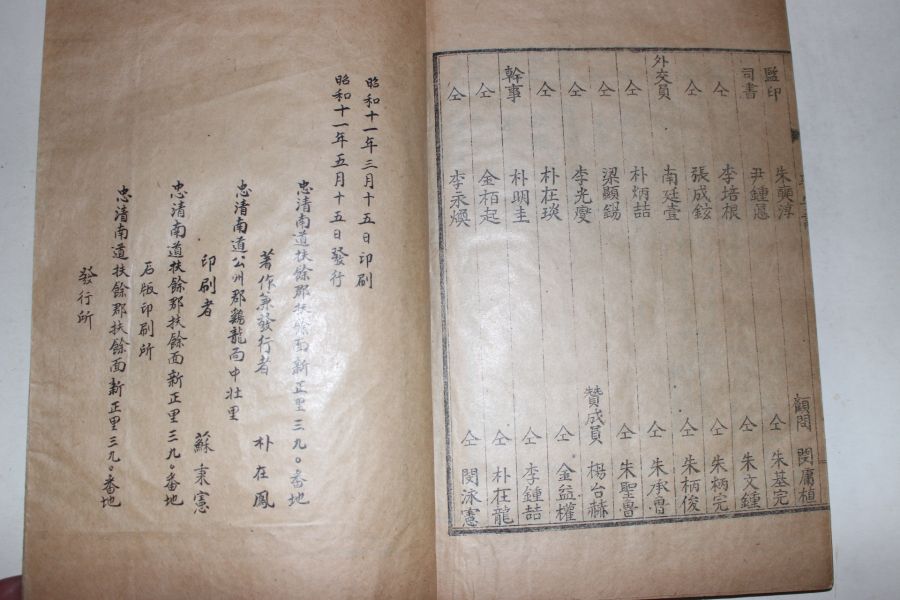 監印 朱奭淳
司書 尹鍾㥣
仝 李培根
仝 張成鉉
外交員 南廷壹
仝 朴炳喆
仝 梁顯錫
仝 李光夔
仝 朴在琰
幹事 朴明圭
仝 金栢起
仝 李永煥
顧問 閔庸植
仝 朱基完
仝 朱文鍾
仝 朱炳完
仝 朱柄俊
仝 朱承曹
仝 朱聖魯
贊成員 楊台赫
仝 金益權
仝 李鍾喆
仝 朴在龍
仝 閔泳憲
昭和十一年三月十五日印刷
昭和十一年五月十五日發行
忠清南道扶餘郡扶餘面新正里三九〇番地
著作兼發行者 朴在鳳
忠清南道公州郡鷄龍面中壯里
印刷者 蘇秉憲
忠清南道扶餘郡扶餘面新正里三九〇番地
石版印刷所
忠清南道扶餘郡扶餘面新正里三九〇番地
發行所